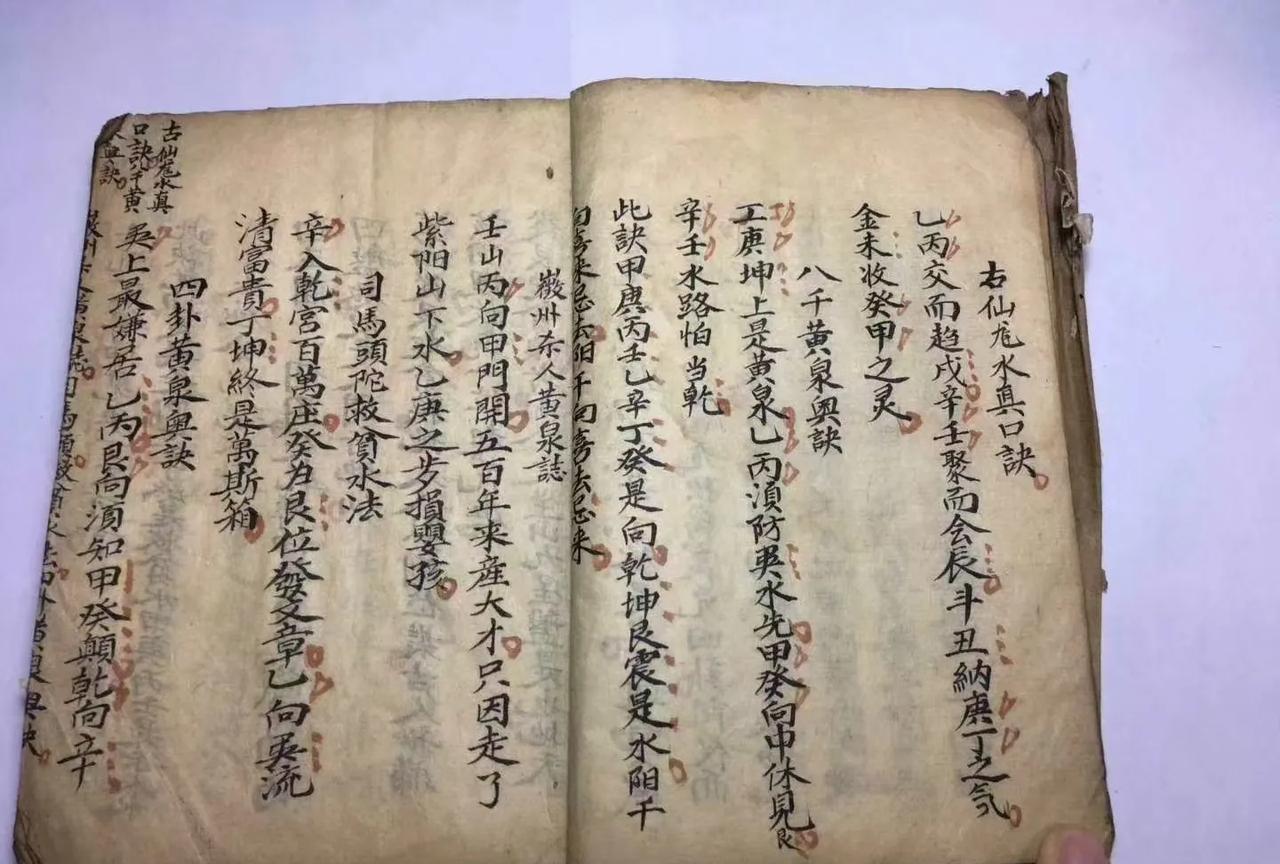 古仙尨水真口訣
乙丙交而趋戌辛壬聚而会辰斗丑納庚丁之氣
金未收癸甲之灵
八千黄泉奥訣
丁庚坤上是黄泉乙丙湏防巽水先甲癸向中休見艮
辛壬水路怕当乾
此訣甲庚丙壬乙辛丁癸是向乾坤艮震是水阳千
向喜来忌去阳千向喜去忌来
徽州夲人黄泉誌
壬山丙向甲門開五百年来産大才只因走了
紫阳山下水乙庚之步損嬰孩
司馬頭陀救貧水法
辛入乾宮百萬庄癸为艮位發文章乙向巽流
清富貴丁坤終是萬斯箱
四卦黄泉奥訣
巽上最嫌居乙丙艮向湏知甲癸顛乾向辛
古仙尨水真
口訣八千黄
泉奥訣